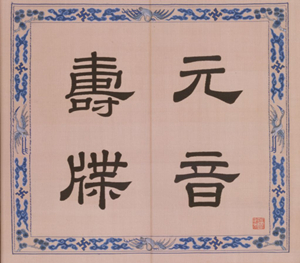 元音
壽牒